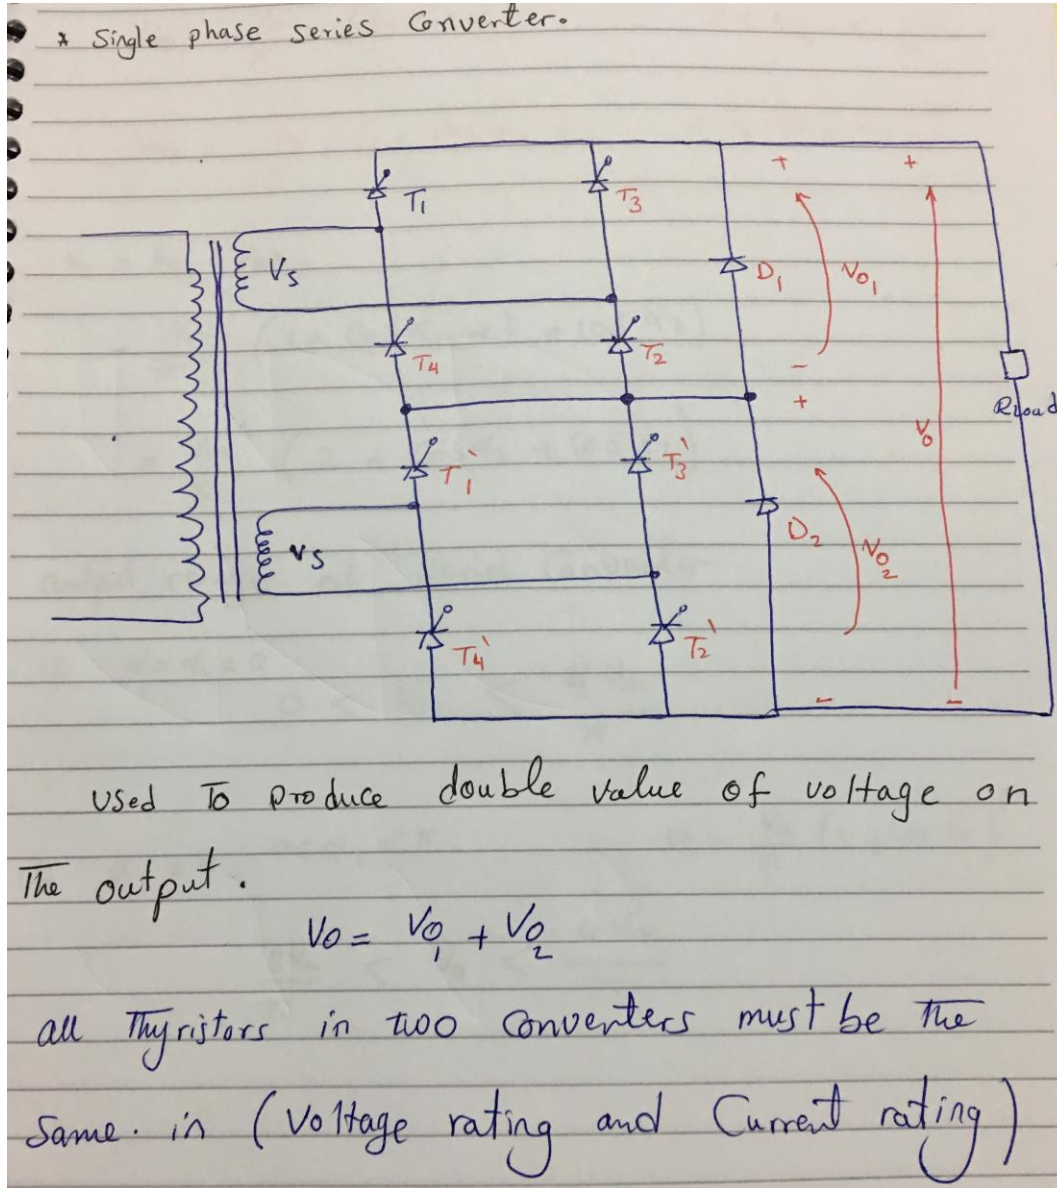 * Single phase series Converter.
T1
T3
Vs
D1
Vo1
+
+
T4
T2
-
+
Rload
Vo
T1'
T3'
Vs
D2
Vo2
T4'
T2'
-
-
used To produce double value of voltage on
The output.
Vo = Vo1 + Vo2
all Thyristors in two Converters must be the
Same. in (Voltage rating and Current rating)